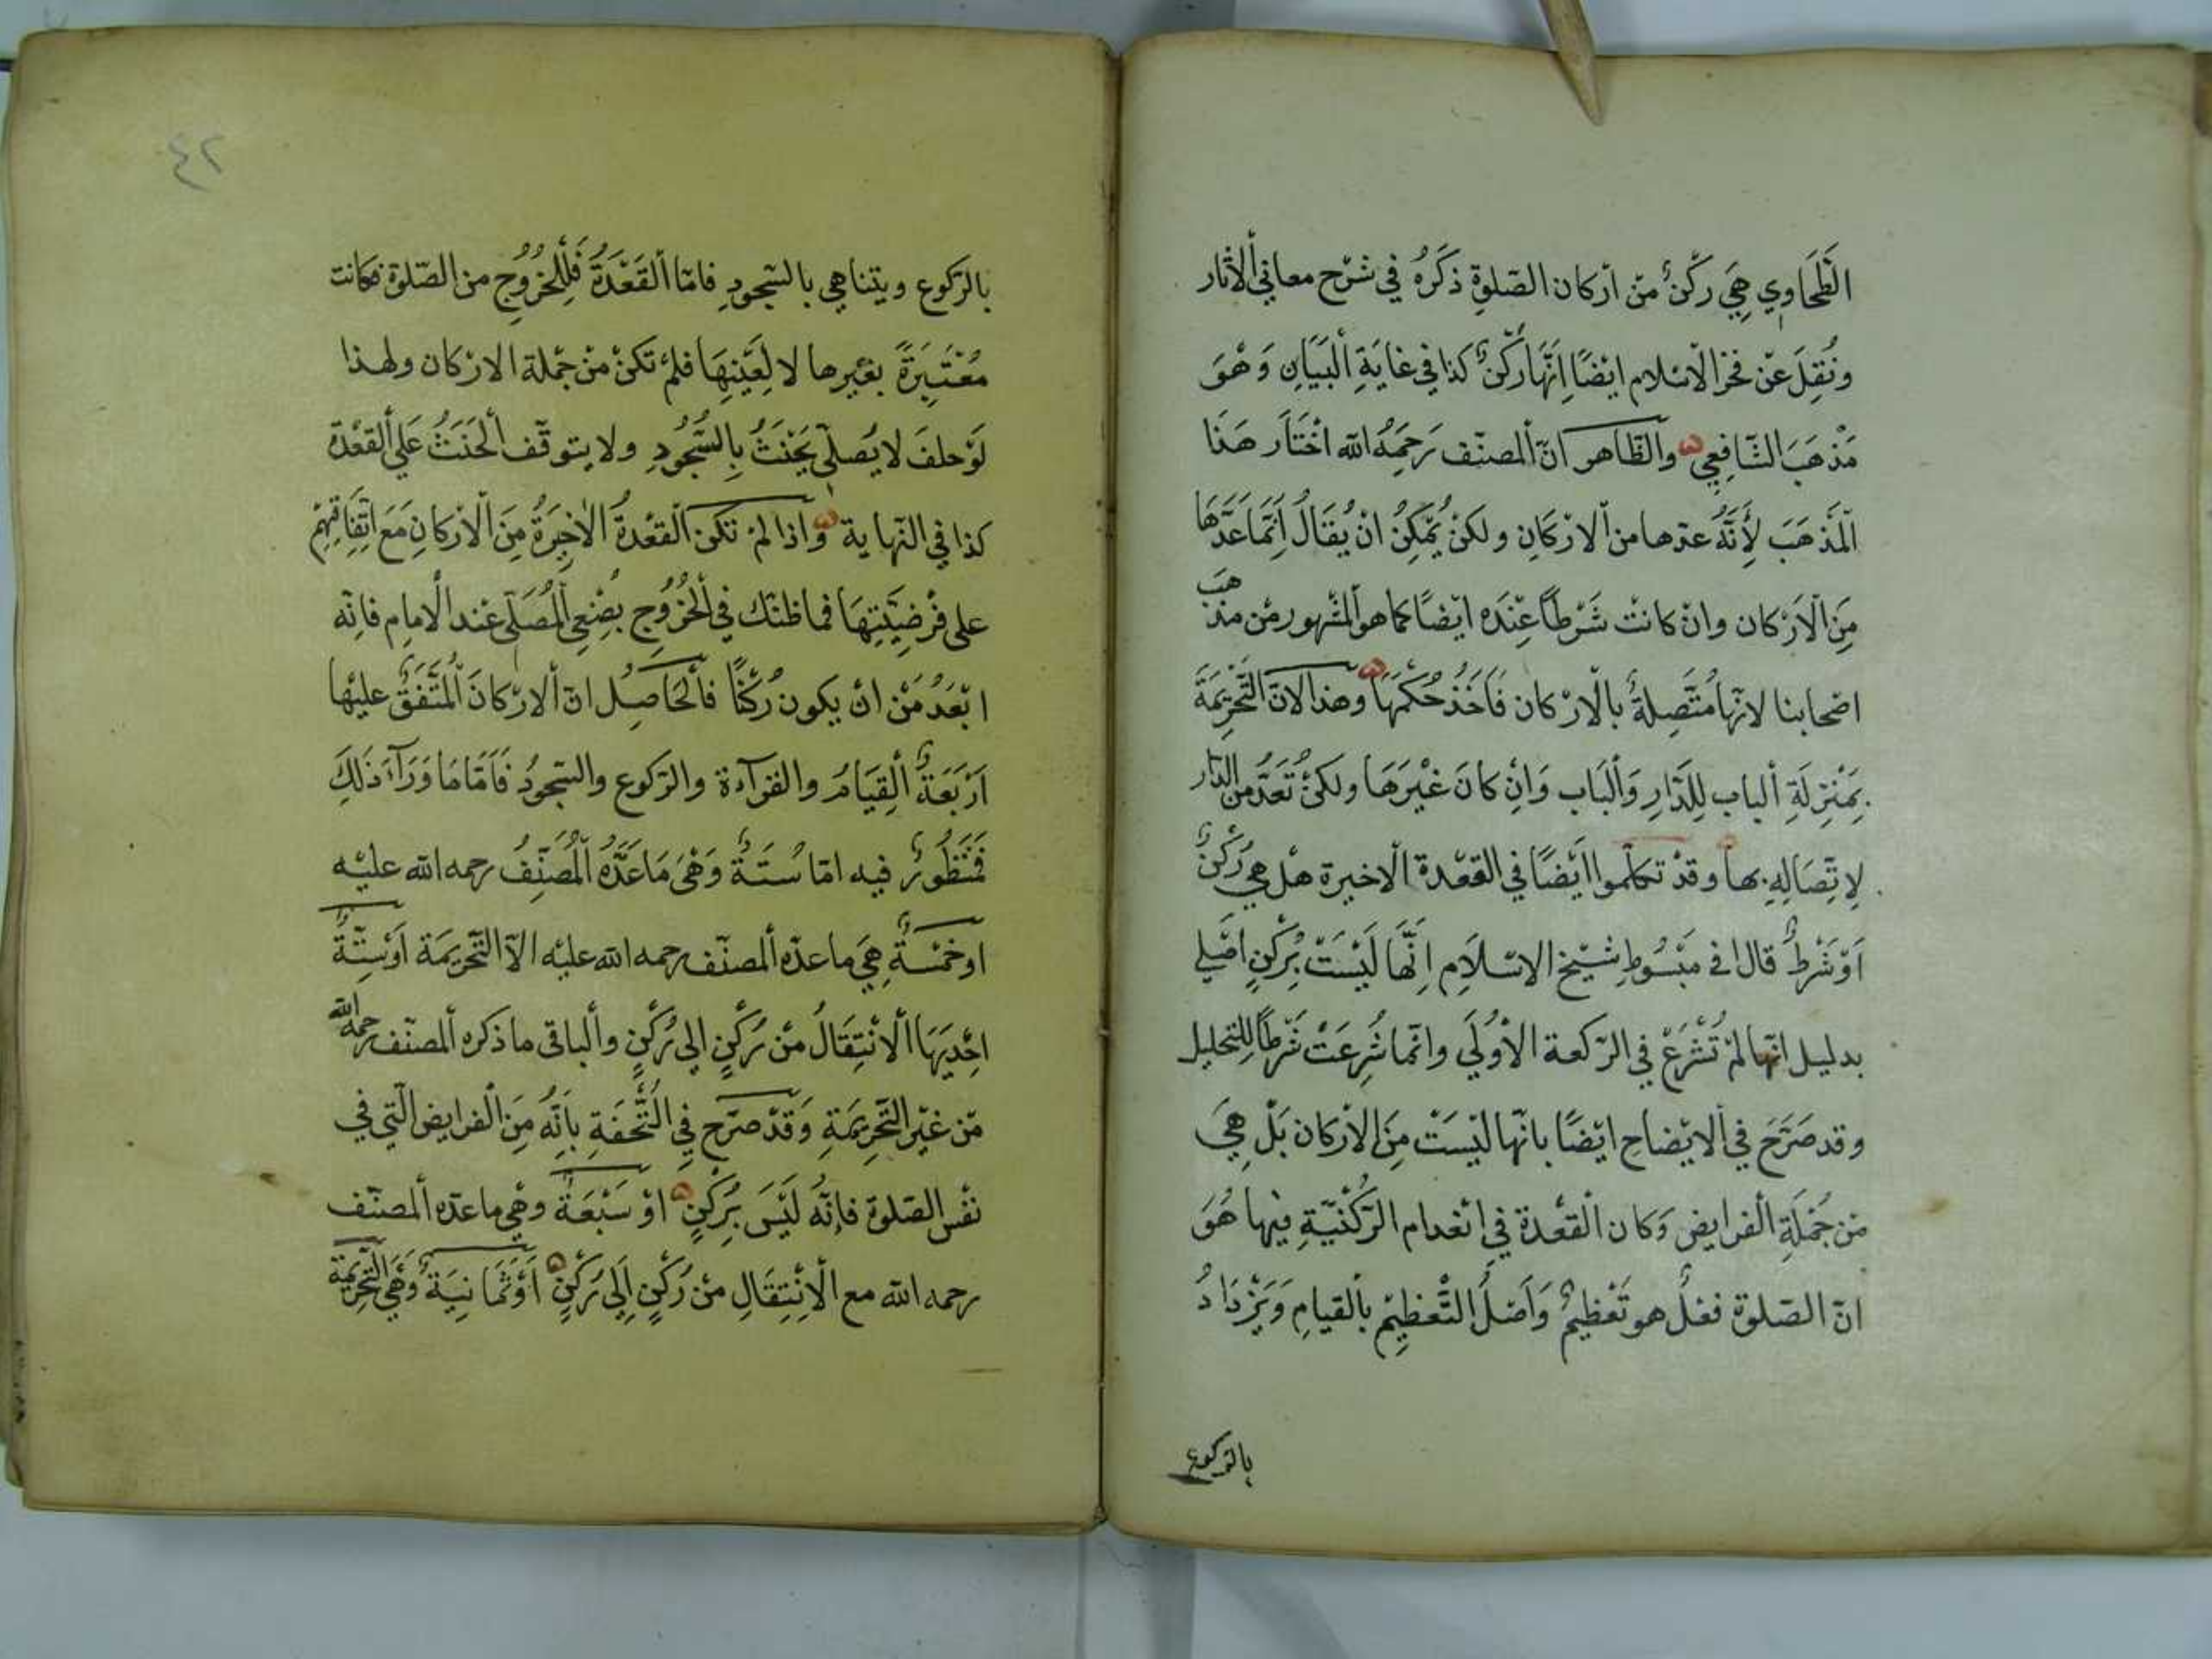 الطَّحَاوِي هِيَ رُكْنٌ مِنْ أَرْكان الصّلوةِ ذَكَرَهُ فِي شَرْح معاني ألاثار
وَنُقِلَ عَنْ فخر الْاسْلام ايْضًا إِنَّهَا رُكْنٌ كذا في غايَةِ ألبَيَانِ وَهُوَ
مَذْهَبَ الشّافِعِي والظّاهر انّ ألمصنّف رَحِمَهُ الله اخْتَارَ هَذَا
الْمَذْهَبَ لِأَنَّهُ عدّها من ألارْكَانِ ولكنْ يُمْكِنُ انْ يُقَالُ اِنَّمَا عَدَّهَا
مِنَ الْارْكان وانْ كانتْ شَرْطًا عِنْدَه ايْضًا كما هو ألمشْهور مْن مذهَب
اصْحابنا لانّها مُتَّصِلةٌ بالْارْكان فَاَخَذْ حُكْمَهَا وهذا لانّ التَّحْرِيمَةَ
بِمَنْزِلَةِ ألباب لِلدَّارِ وَألْبَاب وَاِنْ كانَ غَيْرَهَا ولكنْ تُعَدُّ من الدّار
لِاتِّصَالِهِ بها وقدْ تكلّموا ايْضًا في القعْدة الْاخيرة هلْ هِيَ رُكْنٌ
اَوْ شَرْطٌ قال في مَبْسُوطِ شيْخ الاسْلَامِ اِنَّهَا لَيْسَتْ بِرُكْنٍ اصْلي
بدليل انّها لمْ تُشْرَعْ في الرّكعة الْأُولَي وانّما شُرِعَتْ شَرْطًا لِلتحليل
وقد صَرَّحَ في ألايْضاح ايْضًا بانّها ليْسَتْ مِنَ الْارْكان بَلْ هِيَ
من جُمْلَةِ الْفرايض وَكان الْقعْدة في انْعدام الرّكْنيّةِ فيها هُوَ
انّ الصّلوة فعْلٌ هو تَعْظِيمٌ وَاَصْلُ التَّعْظِيمِ بألقيامِ وَيَزْدَادُ
بالركوع
٤٢
بالرّكوع ويتناهي بالسّجودِ فامّا ألقَعْدَةُ فَلِلْخُرُوجِ من الصّلوة فكانت
مُعْتَبَرَةً بغيرها لا لِعَيْنِهَا فلمْ تكنْ منْ جمْلة الارْكان ولهذا
لَوْ حلفَ لا يُصلّي يَحْنَثُ بِالسُّجُودِ ولا يتوقّف ألحَنَثُ عَلَي ألقَعْدة
كذا في النّهاية وَاذا لمْ تكن ألقعْدةُ الْاخيرَةُ مِنَ الْأَرْكانِ مَعَ اتِّفَاقِهِمْ
على فرْضِيَّتِهَا فما ظنّك في الْخُرُوجِ بصُنْعِ ألمُصَلّي عند الْامام فانّه
ابْعَدُ مْن انْ يكون رُكْنًا فألحَاصِلُ انّ ألارْكانَ المُتَّفَقَ عليْها
اَرْبَعَةٌ ألقِيَامُ والقرآءة والرّكوع والسّجودُ فَاَمَّا مَا وَرَآءَ ذَلِكَ
فَمَنْظُورٌ فيه امّا سُتّةٌ وَهْيَ مَا عَدَّهُ ألْمُصَنِّفُ رحمه الله عليْه
اوخمْسَةٌ هِيَ ما عدّه ألمصنّف رحمه الله عليْه الاّ التّحْريمَة اَوْ سِتّةٌ
احْدَيهَا الْانْتِقَالُ منْ رُكْنٍ الي رُكْنٍ وألباقي ما ذكره ألمصنّف رحمه الله
منْ غيْر التَّحْرِيمَةِ وَقَدْ صَرّح فِي التُّحْفَةِ بأَنَّهُ مِنَ الْفرايض الّتي في
نفْس الصّلوة فاِنَّهُ لَيْسَ بِرُكْنٍ اوْ سَبْعَةٌ وهْي ما عدّه ألمصنّف
رحمه الله مع الْاِنْتِقَالِ منْ رُكْنٍ اِلَي رُكْنٍ اَوْ ثَمَانِيَةٌ وَهْيَ التّحْرِيمَة